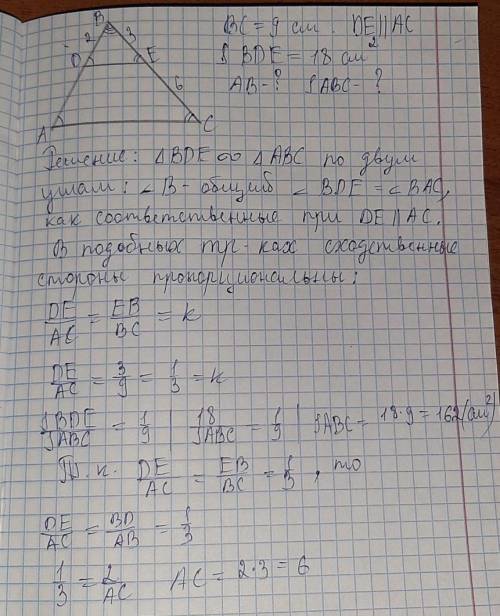 B
2 3
D E
6
A C
BC = 9 см. DE||AC
S BDE = 18 см²
AB - ? SABC - ?
Решение: △BDE ∞ △ABC по двум
углам: ∠B - общий ∠BDE = ∠BAC,
как соответственные при DE || AC.
В подобных тр-ках сходственные
стороны пропорциональны:
DE/AC = EB/BC = k
DE/AC = 3/9 = 1/3 = k
SBDE/SABC = 1/9 | 18/SABC = 1/9 | SABC = 18·9 = 162 (см²)
Т.к. DE/AC = EB/BC = 1/3, то
DE/AC = BD/AB = 1/3
1/3 = 2/AC AC = 2·3 = 6